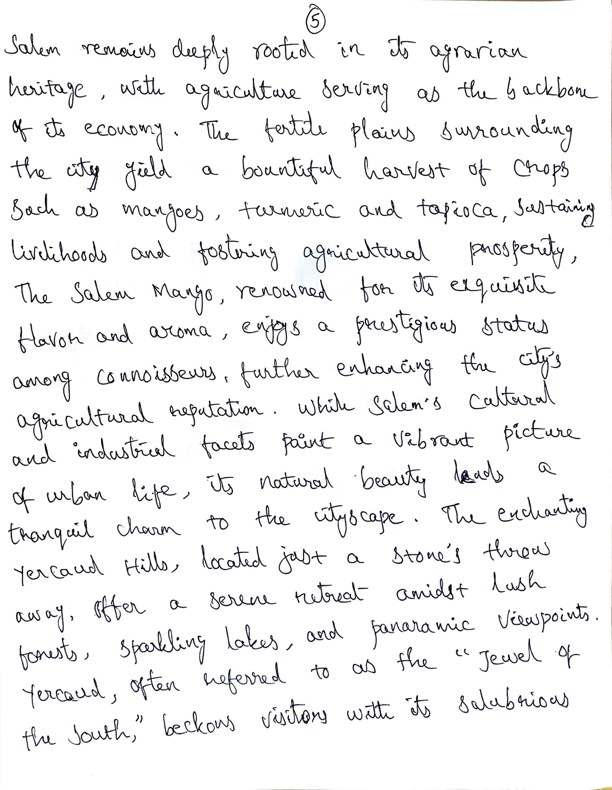 5
Salem remains deeply rooted in its agrarian
heritage, with agriculture serving as the backbone
of its economy. The fertile plains surrounding
the city yield a bountiful harvest of crops
Such as mangoes, turmeric and tapioca, sustaining
livelihoods and fostering agricultural prosperity,
The Salem Mango, renowned for its exquisite
flavor and aroma, enjoys a prestigious status
among connoisseurs, further enhancing the city's
agricultural reputation. While Salem's cultural
and industrial facets paint a vibrant picture
of urban life, its natural beauty lends a
tranquil charm to the cityscape. The enchanting
Yercaud Hills, located just a stone's throw
away, offer a serene retreat amidst lush
forests, sparkling lakes, and panaramic viewpoints.
Yercaud, often referred to as the "Jewel of
the South," beckons visitors with its salubrious